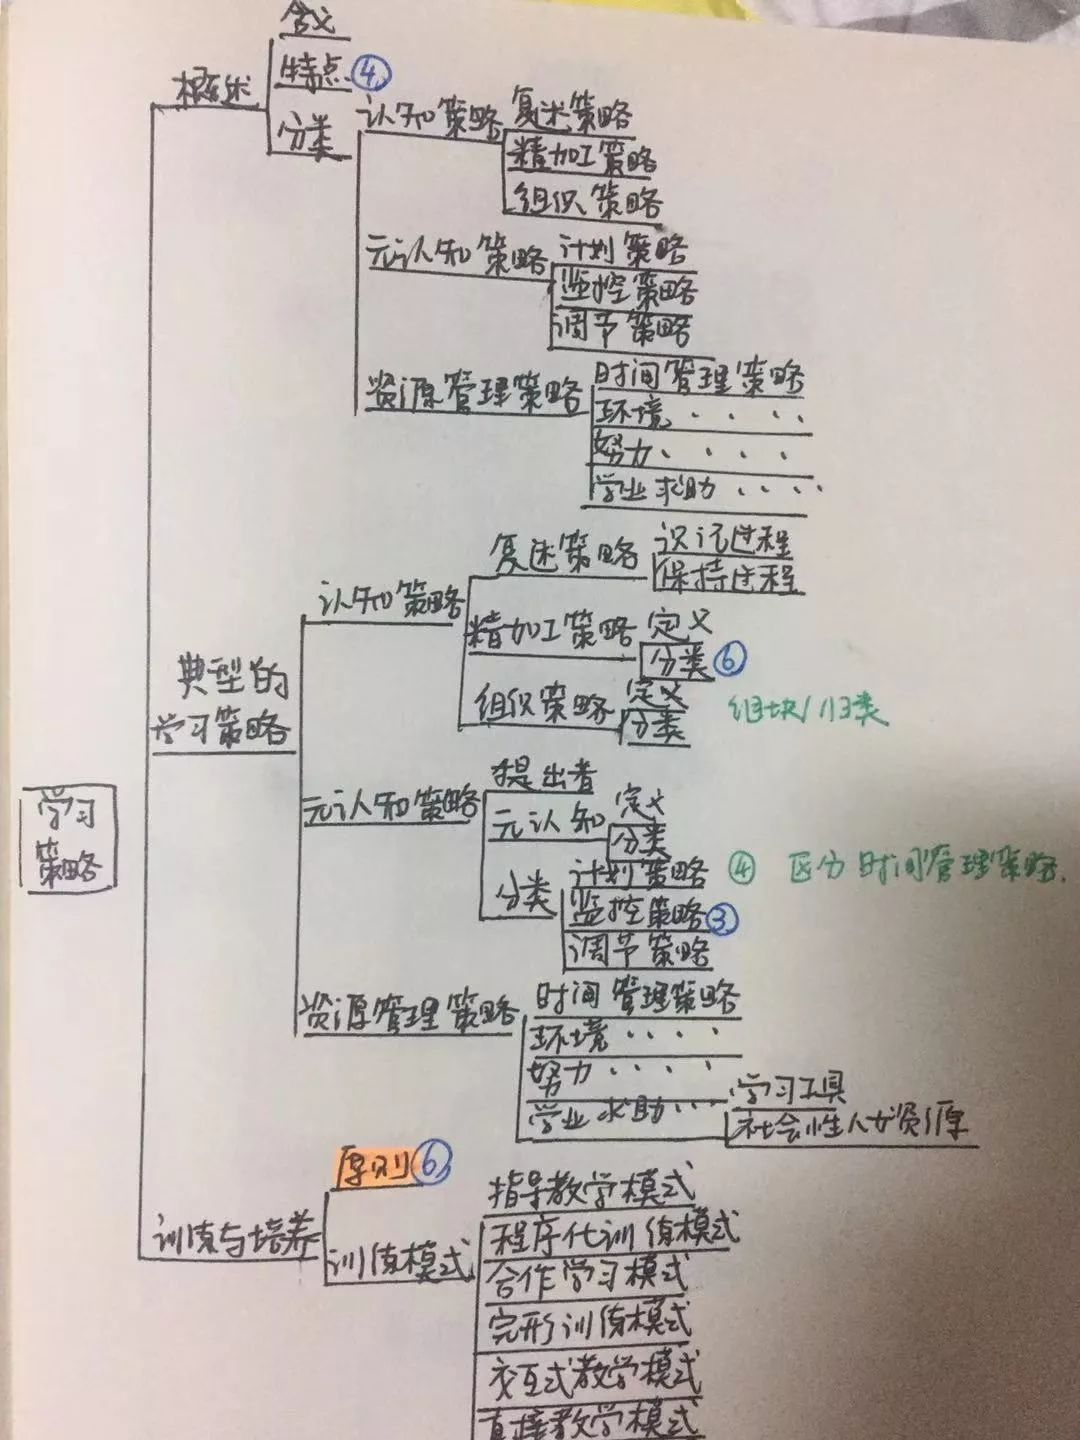 含义
概述
特点 ④
分类
认知策略 复述策略
精加工策略
组织策略
元认知策略 计划策略
监控策略
调节策略
资源管理策略 时间管理策略
环境 · · · ·
努力 · · · ·
学业求助 · · · ·
复述策略 识记过程
保持过程
认知策略
精加工策略 定义
分类 ⑥
组织策略 定义
分类
组块/归类
典型的
学习策略
提出者
元认知策略
元认知 定义
分类
分类 计划策略 ④ 区分时间管理策略.
监控策略 ③
调节策略
学习
策略
资源管理策略 时间管理策略
环境 · · · ·
努力 · · · ·
学业求助 · · · 学习工具
社会性人力资源
原则 ⑥
训练与培养
训练模式 指导教学模式
程序化训练模式
合作学习模式
完形训练模式
交互式教学模式
直接教学模式